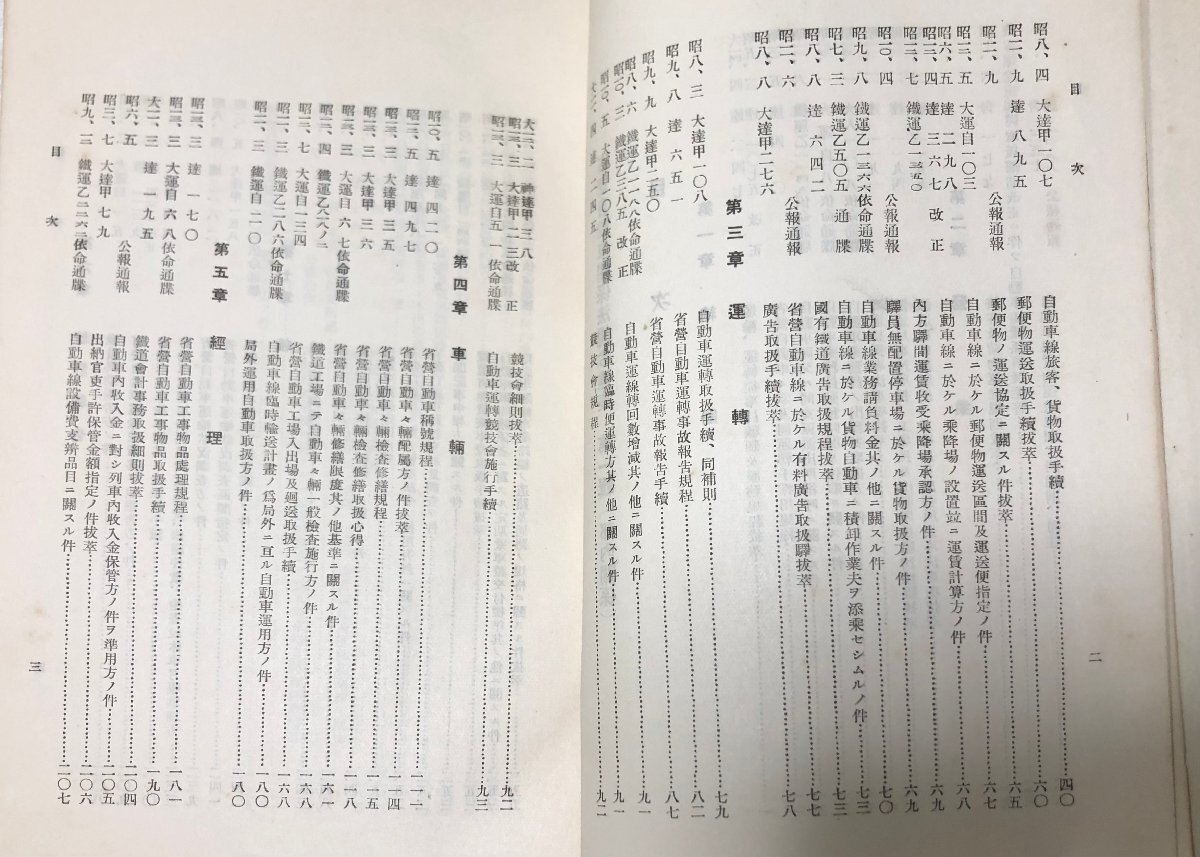 目次
昭八、四 大達甲一〇七 自動車線旅客、貨物取扱手續 四〇
昭二、九 達八九五 郵便物運送取扱手續拔萃 六〇
昭二、九 公報通報 郵便物ノ運送協定ニ關スル件拔萃 六五
昭三、五 大運自一〇三 自動車線ニ於ケル郵便物運送區間及運送便指定ノ件 六七
昭六、五 達二九八 自動車線ニ於ケル乘降場ノ設置竝ニ運賃計算方ノ件 六八
達三六七改正
内方驛間運賃收受乘降場承認方ノ件 六九
昭一〇、四 公報通報 驛員無配置停車場ニ於ケル貨物取扱方ノ件 七〇
昭九、八 依命通牒 自動車線業務請負料金其ノ他ニ關スル件 七三
昭七、三 鐵運乙五〇五通牒 自動車線ニ於ケル貨物自動車ニ積卸作業夫ヲ添乘セシムルノ件 七三
昭八、八 達六四二 國有鐵道廣告取扱規程拔萃 七七
昭二、六 公報通報 省營自動車線ニ於ケル有料廣告取扱驛拔萃 七八
昭八、八 大達甲二七六 廣告取扱手續拔萃
第三章 運轉
昭八、三 大達甲一〇八 自動車運轉取扱手續、同補則 七九
昭九、八 達六五一 省營自動車運轉事故報告規程 八二
昭九、九 大達甲二五〇 省營自動車運轉事故報告手續 八七
自動車運線轉回數增減其ノ他ニ關スル件 九一
自動車線臨時便運轉方其ノ他ニ關スル件 九一
競技會規程 九二
二
競技會細則拔萃 九二
大運自五一依命通牒 自動車運轉競技會施行手續 九三
第四章 車輛
昭一〇、五 達四二〇 省營自動車稱號規程 一一一
昭三、五 達四九七 省營自動車々輛配屬方ノ件拔萃 一一四
大達甲三五 省營自動車々輛檢查修繕規程 一一五
大達甲三六 省營自動車々輛檢查修繕取扱心得 一一八
大運自六七依命通牒 省營自動車々輛修繕限度其ノ他基準ニ關スル件 一六一
鐵道工場ニテ自動車々輛一般檢查施行方ノ件 一六八
大運自一三四 省營自動車工場入出場及廻送取扱手續 一六八
依命通牒 自動車線臨時輸送計畫ノ爲局外ニ亙ル自動車運用方ノ件 一八〇
鐵運自二一〇 局外運用自動車取扱方ノ件 一八〇
第五章 經理
達一七〇 省營自動車工事物品處理規程 一八一
大運自六八依命通牒 省營自動車工事物品取扱手續 一九〇
達一九五 鐵道會計事務取扱細則拔萃 二〇四
昭六、五 公報通報 自動車內收入金ニ對シ列車內收入金保管方ノ件ヲ準用方ノ件 二〇五
昭三、七 大達甲七九 出納官吏手許保管金額指定ノ件拔萃 二〇六
依命通牒 自動車線設備費支辨品目ニ關スル件 二〇七
目次
三